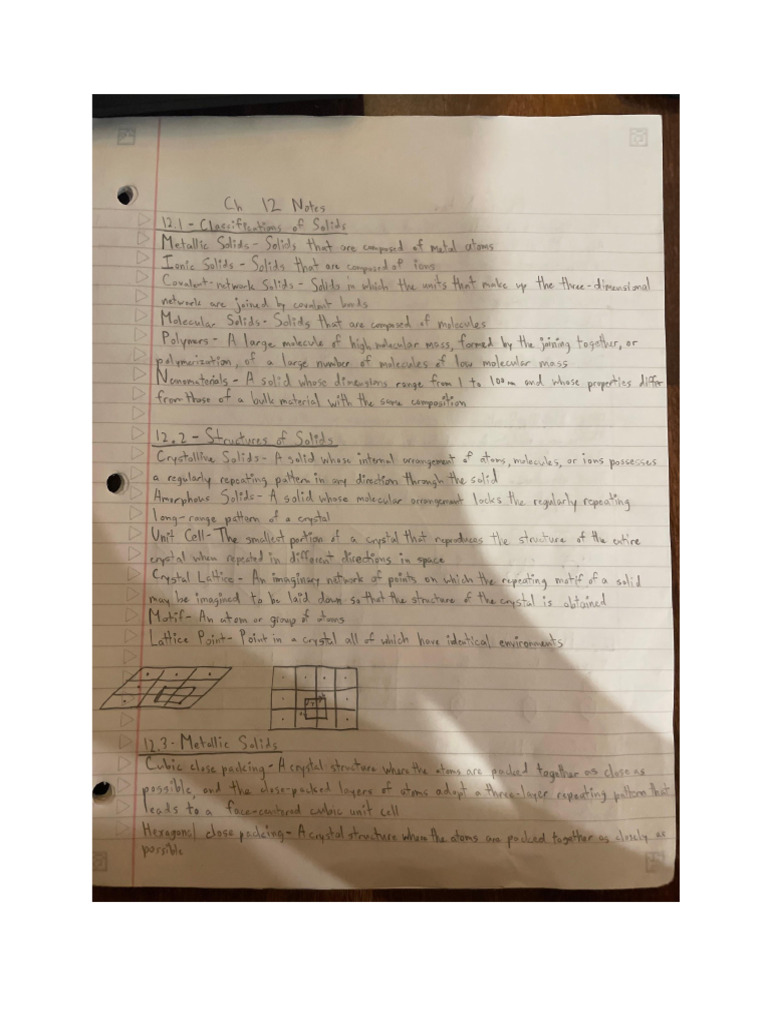 Ch 12 Notes
12.1 - Classifications of Solids
Metallic Solids - Solids that are composed of metal atoms
Ionic Solids - Solids that are composed of ions
Covalent-network Solids - Solids in which the units that make up the three-dimensional
network are joined by covalent bonds
Molecular Solids - Solids that are composed of molecules
Polymers - A large molecule of high molecular mass, formed by the joining together, or
polymerization, of a large number of molecules of low molecular mass
Nanomaterials - A solid whose dimensions range from 1 to 100 nm and whose properties differ
from those of a bulk material with the same composition
12.2 - Structures of Solids
Crystalline Solids - A solid whose internal arrangement of atoms, molecules, or ions possesses
a regularly repeating pattern in any direction through the solid
Amorphous Solids - A solid whose molecular arrangement lacks the regularly repeating
long-range pattern of a crystal
Unit Cell - The smallest portion of a crystal that reproduces the structure of the entire
crystal when repeated in different directions in space
Crystal Lattice - An imaginary network of points on which the repeating motif of a solid
may be imagined to be laid down so that the structure of the crystal is obtained
Motif - An atom or group of atoms
Lattice Point - Point in a crystal all of which have identical environments
12.3 - Metallic Solids
Cubic close packing - A crystal structure where the atoms are packed together as close as
possible, and the close-packed layers of atoms adopt a three-layer repeating pattern that
leads to a face-centered cubic unit cell
Hexagonal close packing - A crystal structure where the atoms are packed together as closely as
possible